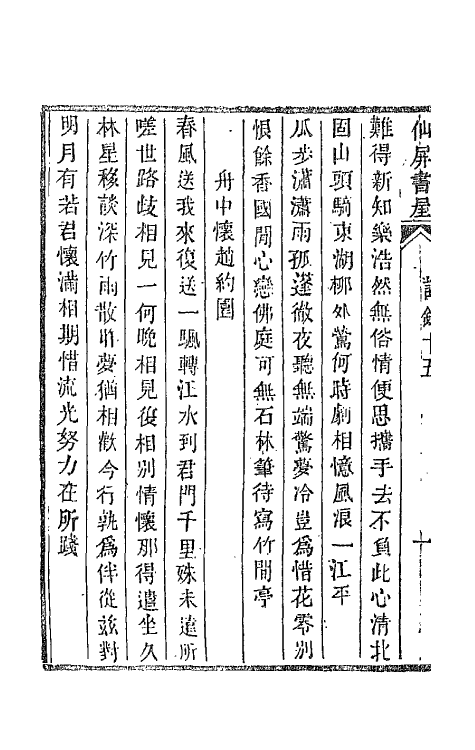 仙屏書屋 詩錄十五 十
難得新知樂浩然無俗情便思攜手去不負此心清北
固山頭騎東湖柳外鶯何時劇相憶風浪一江平
瓜步瀟瀟雨孤蓬徹夜聽無端驚夢冷豈爲惜花零別
恨餘香國閒心戀佛庭可無石林筆待寫竹間亭
舟中懷趙約園
春風送我來復送一颿轉江水到君門千里殊未遠所
嗟世路歧相見一何晚相見復相別情懷那得遣坐久
林星移談深竹雨散昨夢猶相歡今行孰爲伴從茲對
明月有若君懷滿相期惜流光努力在所踐